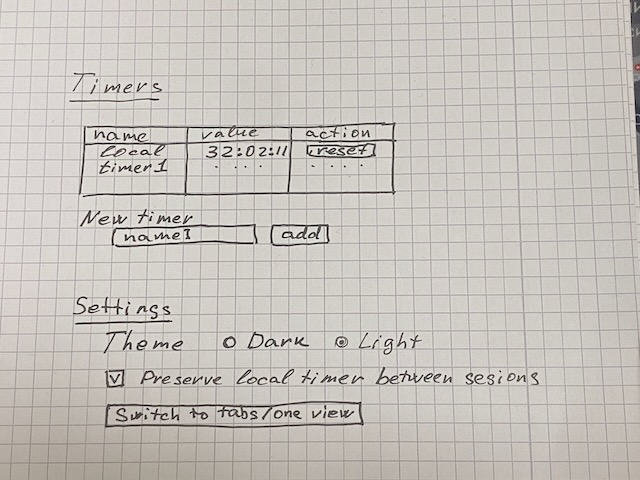 Timers
name value action
local 32:02:11 reset
timer1 . . . . . . .
New timer
name1 add
Settings
Theme Dark Light
Preserve local timer between sesions
Switch to tabs/one view